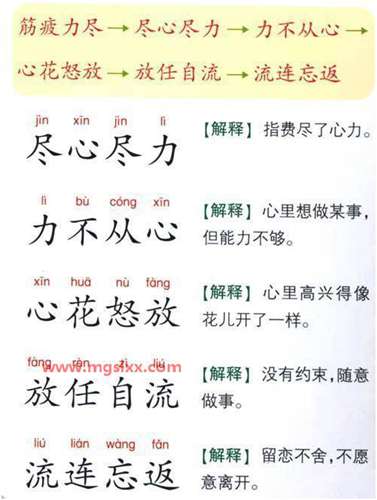 筋疲力尽→尽心尽力→力不从心→
心花怒放→放任自流→流连忘返
jìn xīn jìn lì
尽心尽力
【解释】指费尽了心力。
lì bù cóng xīn
力不从心
【解释】心里想做某事，
但能力不够。
xīn huā nù fàng
心花怒放
【解释】心里高兴得像
花儿开了一样。
fàng rèn zì liú
www.mgslxx.com
放任自流
【解释】没有约束，随意
做事。
liú lián wàng fǎn
流连忘返
【解释】留恋不舍，不愿
意离开。